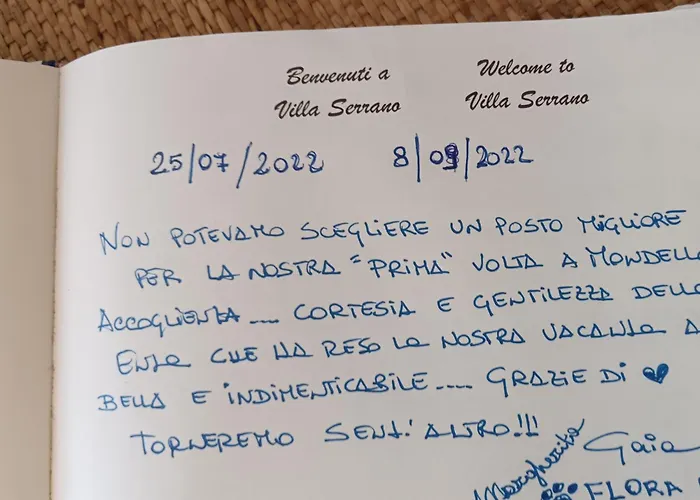 Benvenuti a
Villa Serrano
Welcome to
Villa Serrano
25/07/2022 8/08/2022
NON POTEVAMO SCEGLIERE UN POSTO MIGLIORE
PER LA NOSTRA "PRIMA" VOLTA A MONDELLO
ACCOGLIENZA.... CORTESIA E GENTILEZZA DELLO
CHE HA RESO LA NOSTRA VACANZA A
BELLA E INDIMENTICABILE.... GRAZIE DI ♥
TORNEREMO SENZ'ALTRO!!!
Margherita
Gaia
FLORA